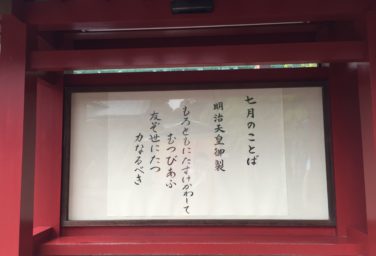 七月のことば
明治天皇御製
もろともにたすけかわして
むつびあふ
友ぞ世にたつ
力なるべき